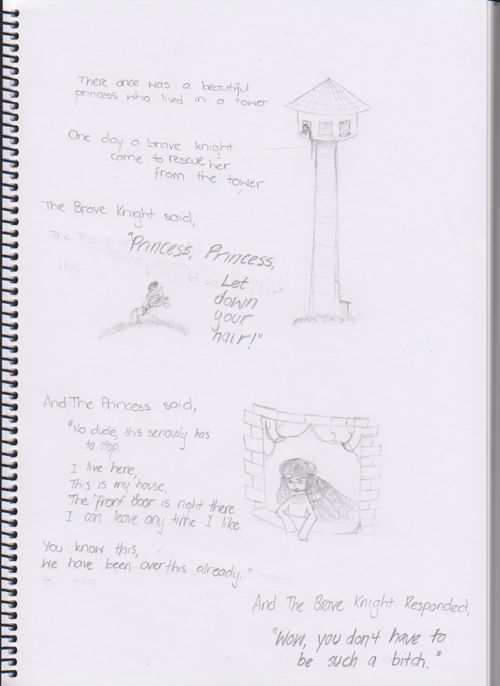 There once was a beautiful
princess who lived in a tower
One day a brave knight
came to rescue her
from the tower
The Brave Knight said,
"Princess, Princess,
Let
down
your
hair!"
And The Princess said,
"No dude, this seriously has
to stop.
I live here,
This is my house,
The 'front' door is right there
I can leave any time I like.
You know this,
We have been over this already."
And The Brave Knight Responded,
"Wow, you don't have to
be such a bitch."